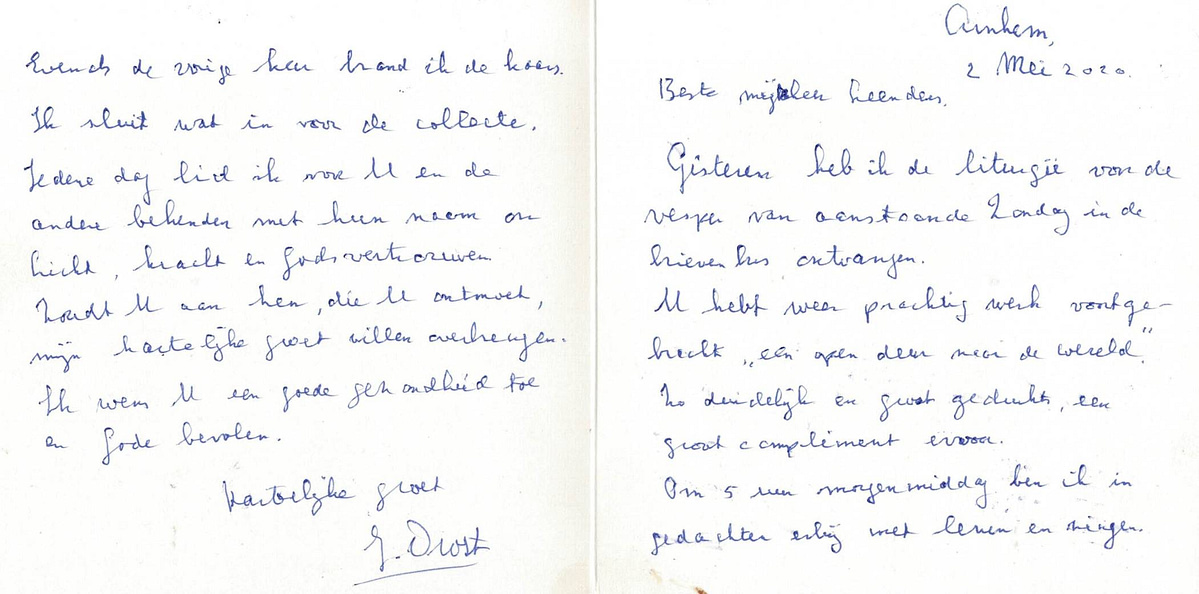 Arnhem,
2 Mei 2020.
Beste Leenders,
Gisteren heb ik de liturgie voor de
vesper van aanstaande Zondag in de
brievenbus ontvangen.
U hebt weer prachtig werk voortge-
bracht „een open deur naar de wereld”
Zo duidelijk en groot gedrukt, een
groot compliment ervoor.
Om 5 uur morgenmiddag ben ik in
gedachten erbij met lezen en zingen.
Evenals de vorige keer brand ik de kaars.
Ik sluit wat in voor de collecte.
Iedere dag bid ik voor U en de
andere bekenden met hun naam om
licht, kracht en Godsvertrouwen.
Zoudt U aan hen, die U ontmoet,
mijn hartelijke groet willen overbrengen.
Ik wens U een goede gezondheid toe
en Gode bevolen.
Hartelijke groet
G. Drost